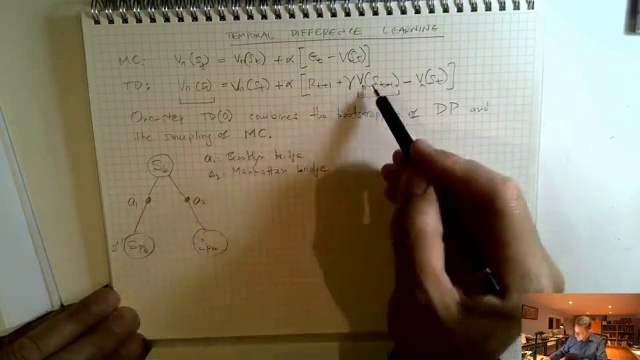 TEMPORAL DIFFERENCE LEARNING
MC: Vπ(St) = Vπ(St) + α [Gt − V(St)]
TD: Vπ(St) = Vπ(St) + α [Rt+1 + γ Vπ(St+1) − Vπ(St)]
One-step TD(0) combines the of DP and
the sampling of MC.
S0 a1: Brooklyn bridge
a2: Manhattan bridge
a1 a2
s'